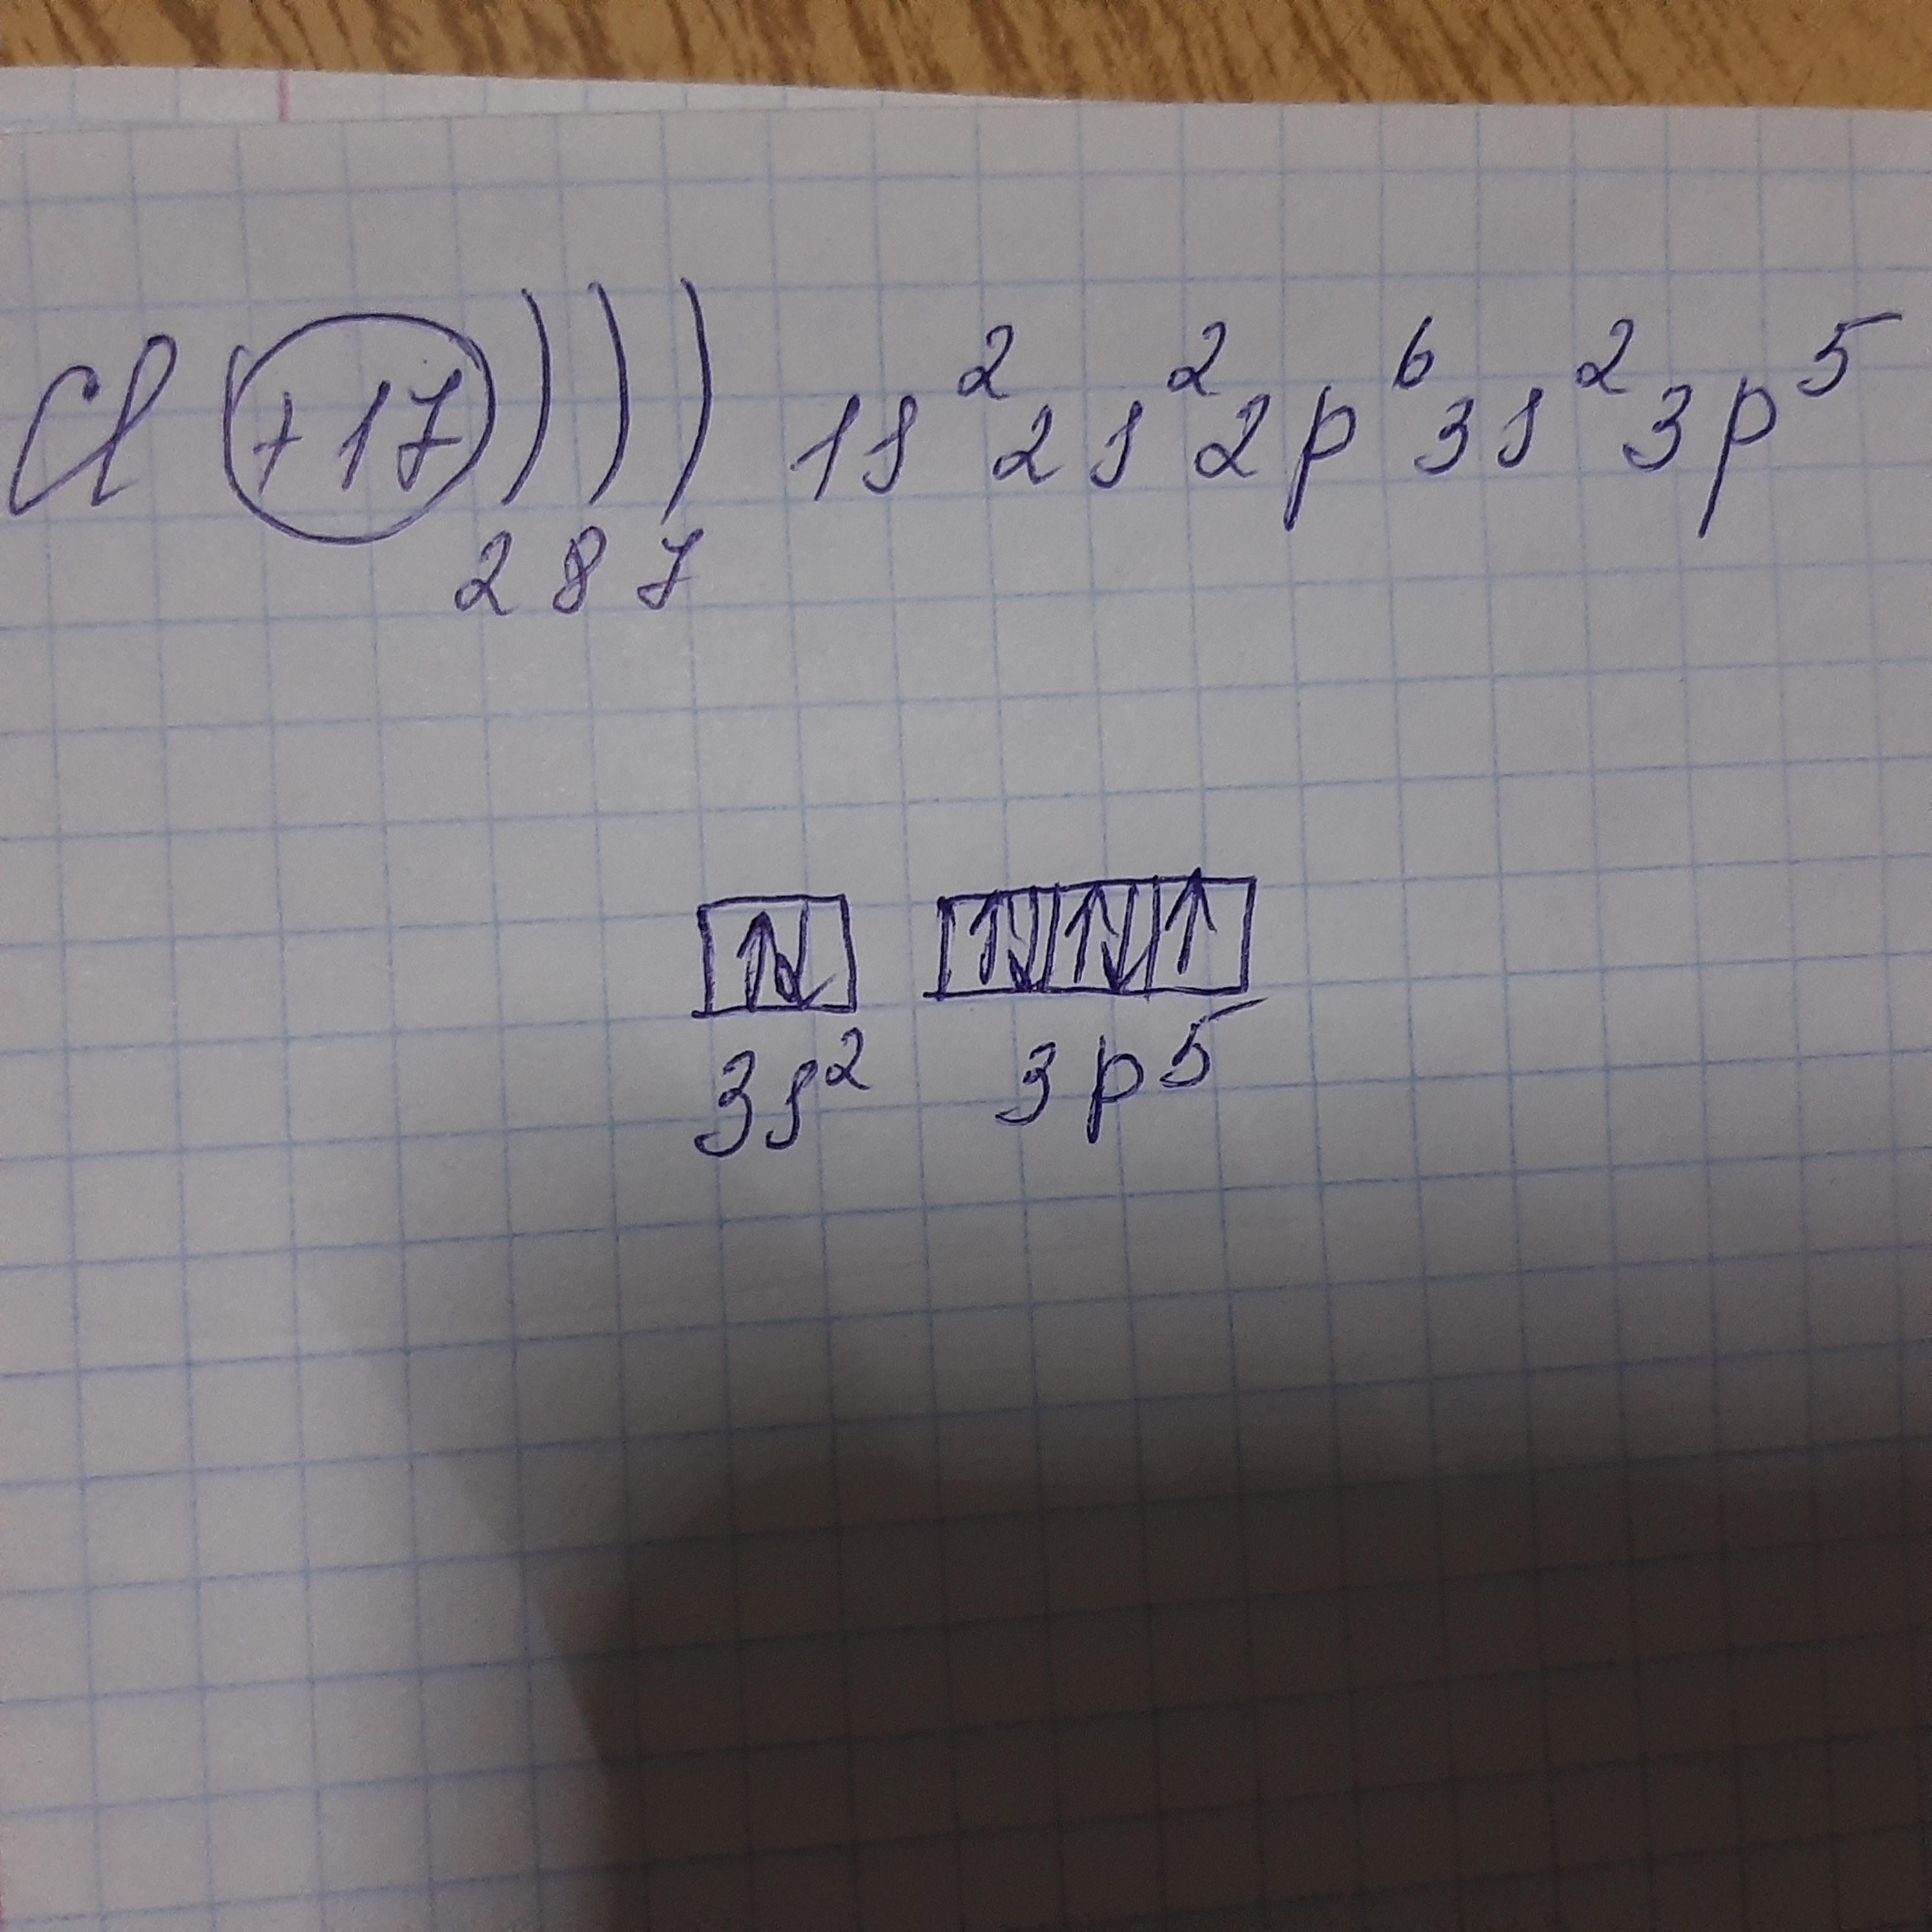 Cl +17 ))) 1s²2s²2p⁶3s²3p⁵
2 8 7
↑↓ ↑↓ ↑↓ ↑
3s² 3p⁵